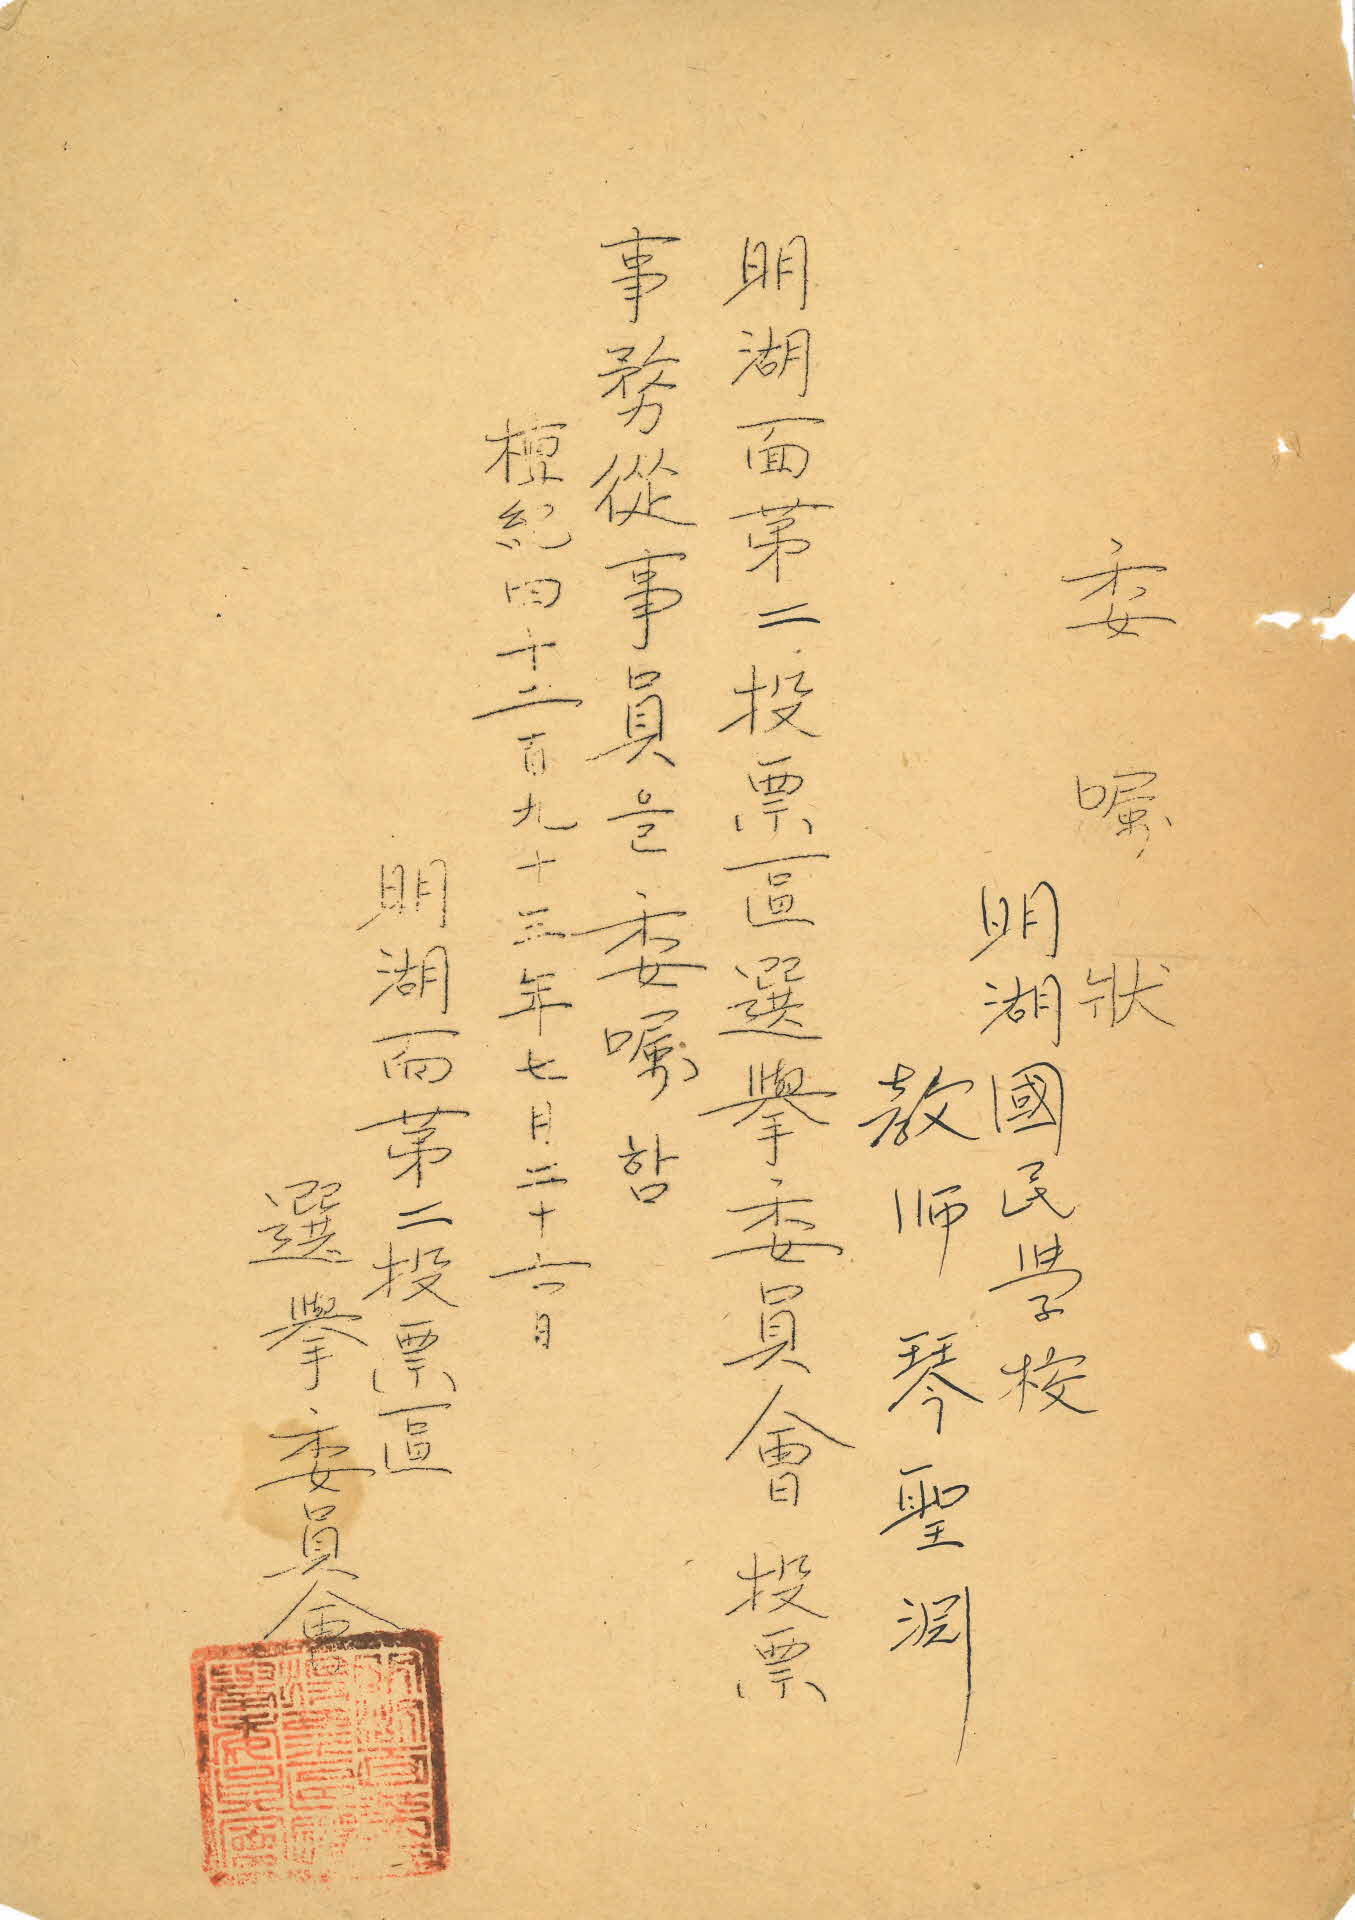 委嘱狀
明湖國民學校
教師 琴聖淵
明湖面第二投票區選擧委員會 投票
事務從事員을 委嘱함
檀紀四千二百九十三年七月二十六日
明湖面第二投票區
選擧委員會